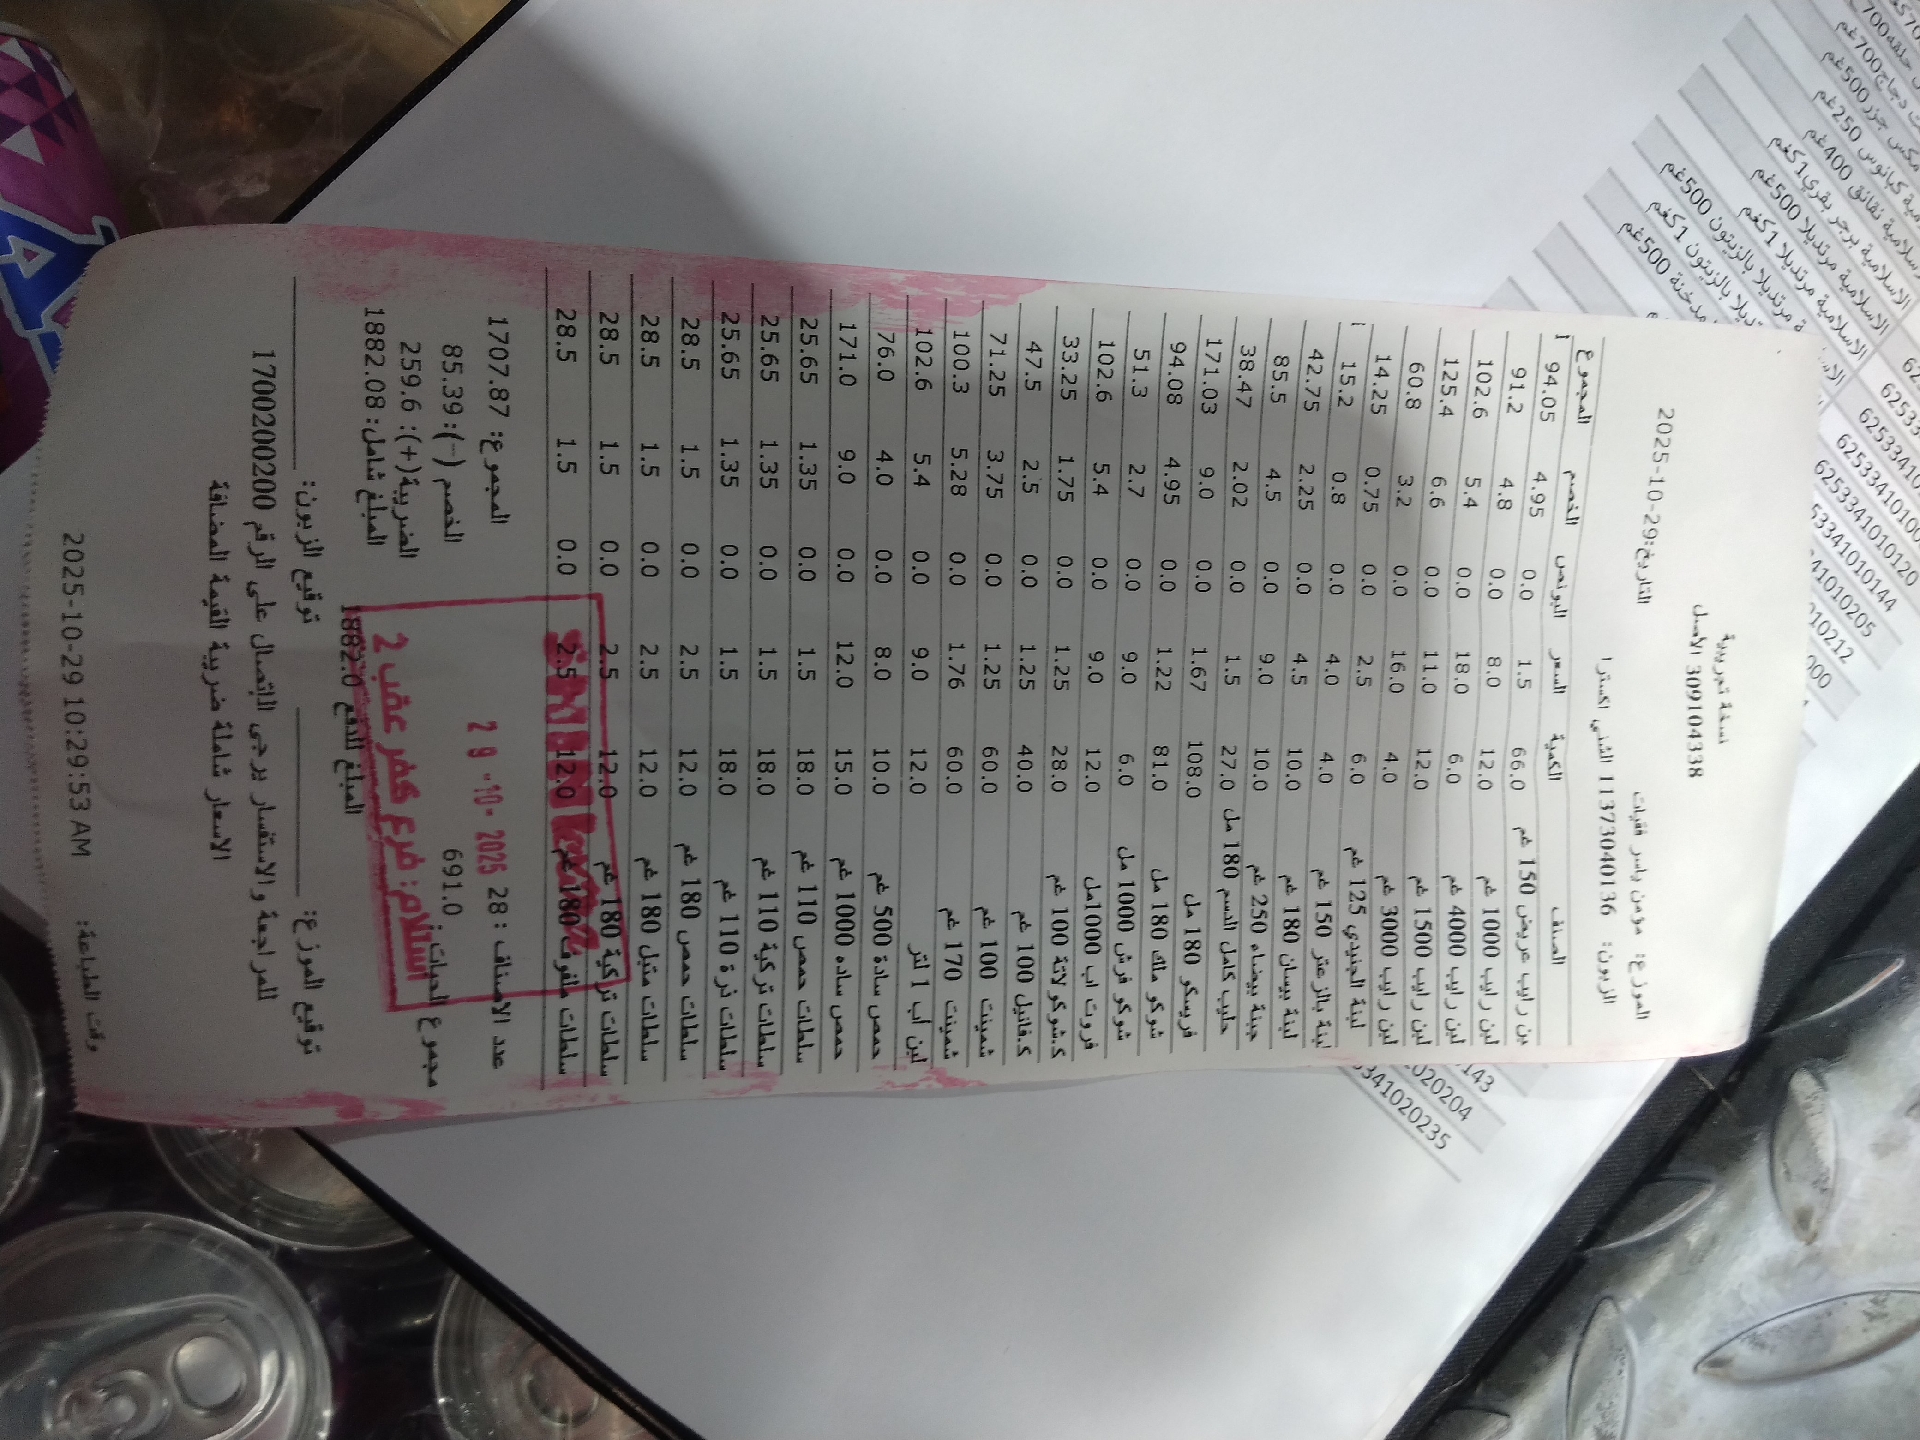 نسخة تجريبية
309104338 الأصل
الموزع: مؤمن ياسر فقيات التاريخ:2025-10-29
الزبون: 11373040136 الشني اكسترا
الصنف الكمية السعر البونص الخصم المجموع
بن رايب عريض 150 غم 66.0 1.5 0.0 4.95 94.05
لبن رايب 1000 غم 12.0 8.0 0.0 4.8 91.2
لبن رايب 4000 غم 6.0 18.0 0.0 5.4 102.6
لبن رايب 1500 غم 12.0 11.0 0.0 6.6 125.4
لبن رايب 3000 غم 4.0 16.0 0.0 3.2 60.8
لبنة الجنيدي 125 غم 6.0 2.5 0.0 0.75 14.25
لبنة بالزعتر 150 غم 4.0 4.0 0.0 0.8 15.2
لبنة بيسان 180 غم 10.0 4.5 0.0 2.25 42.75
جبنة بيضاء 250 غم 10.0 9.0 0.0 4.5 85.5
حليب كامل الدسم 180 مل 27.0 1.5 0.0 2.02 38.47
فريسكو 180 مل 108.0 1.67 0.0 9.0 171.03
شوكو ملك 180 مل 81.0 1.22 0.0 4.95 94.08
شوكو فرش 1000 مل 6.0 9.0 0.0 2.7 51.3
فروت اب 1000مل 12.0 9.0 0.0 5.4 102.6
ك.شوكولاتة 100 غم 28.0 1.25 0.0 1.75 33.25
ك.فانيل 100 غم 40.0 1.25 0.0 2.5 47.5
شمينت 100 غم 60.0 1.25 0.0 3.75 71.25
شمينت 170 غم 60.0 1.76 0.0 5.28 100.3
لبن أب 1 لتر 12.0 9.0 0.0 5.4 102.6
حمص سادة 500 غم 10.0 8.0 0.0 4.0 76.0
حمص ساده 1000 غم 15.0 12.0 0.0 9.0 171.0
سلطات حمص 110 غم 18.0 1.5 0.0 1.35 25.65
سلطات تركية 110 غم 18.0 1.5 0.0 1.35 25.65
سلطات ذرة 110 غم 18.0 1.5 0.0 1.35 25.65
سلطات حمص 180 غم 12.0 2.5 0.0 1.5 28.5
سلطات متبل 180 غم 12.0 2.5 0.0 1.5 28.5
سلطات تركية 180 غم 12.0 2.5 0.0 1.5 28.5
سلطات ملفوف 180 غم 12.0 2.5 0.0 1.5 28.5
عدد الاصناف : 28 المجموع: 1707.87
29 -10- 2025
مجموع الحبات: 691.0 الخصم (-): 85.39
الضريبة(+): 259.6
استلام: فرع كفر عقب 2
المبلغ شامل: 1882.08
المبلغ للدفع 1882.0
توقيع الموزع: توقيع الزبون:
للمراجعة والاستفسار يرجى الاتصال على الرقم 1700200200
الاسعار شاملة ضريبة القيمة المضافة
وقت الطباعة: 2025-10-29 10:29:53 AM